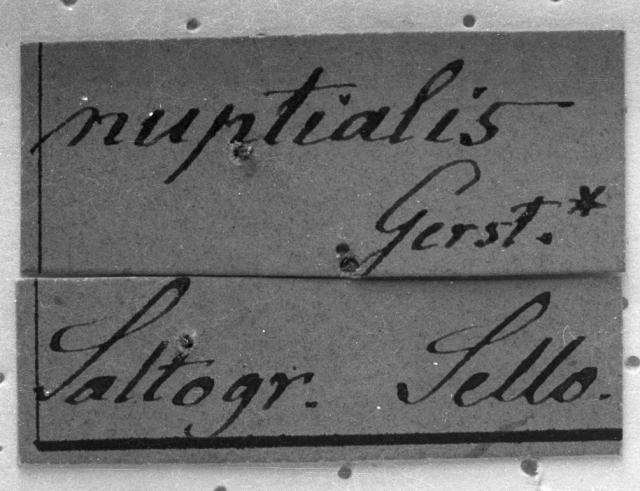 nuptialis
Gerst.*
Saltogr. Sello.